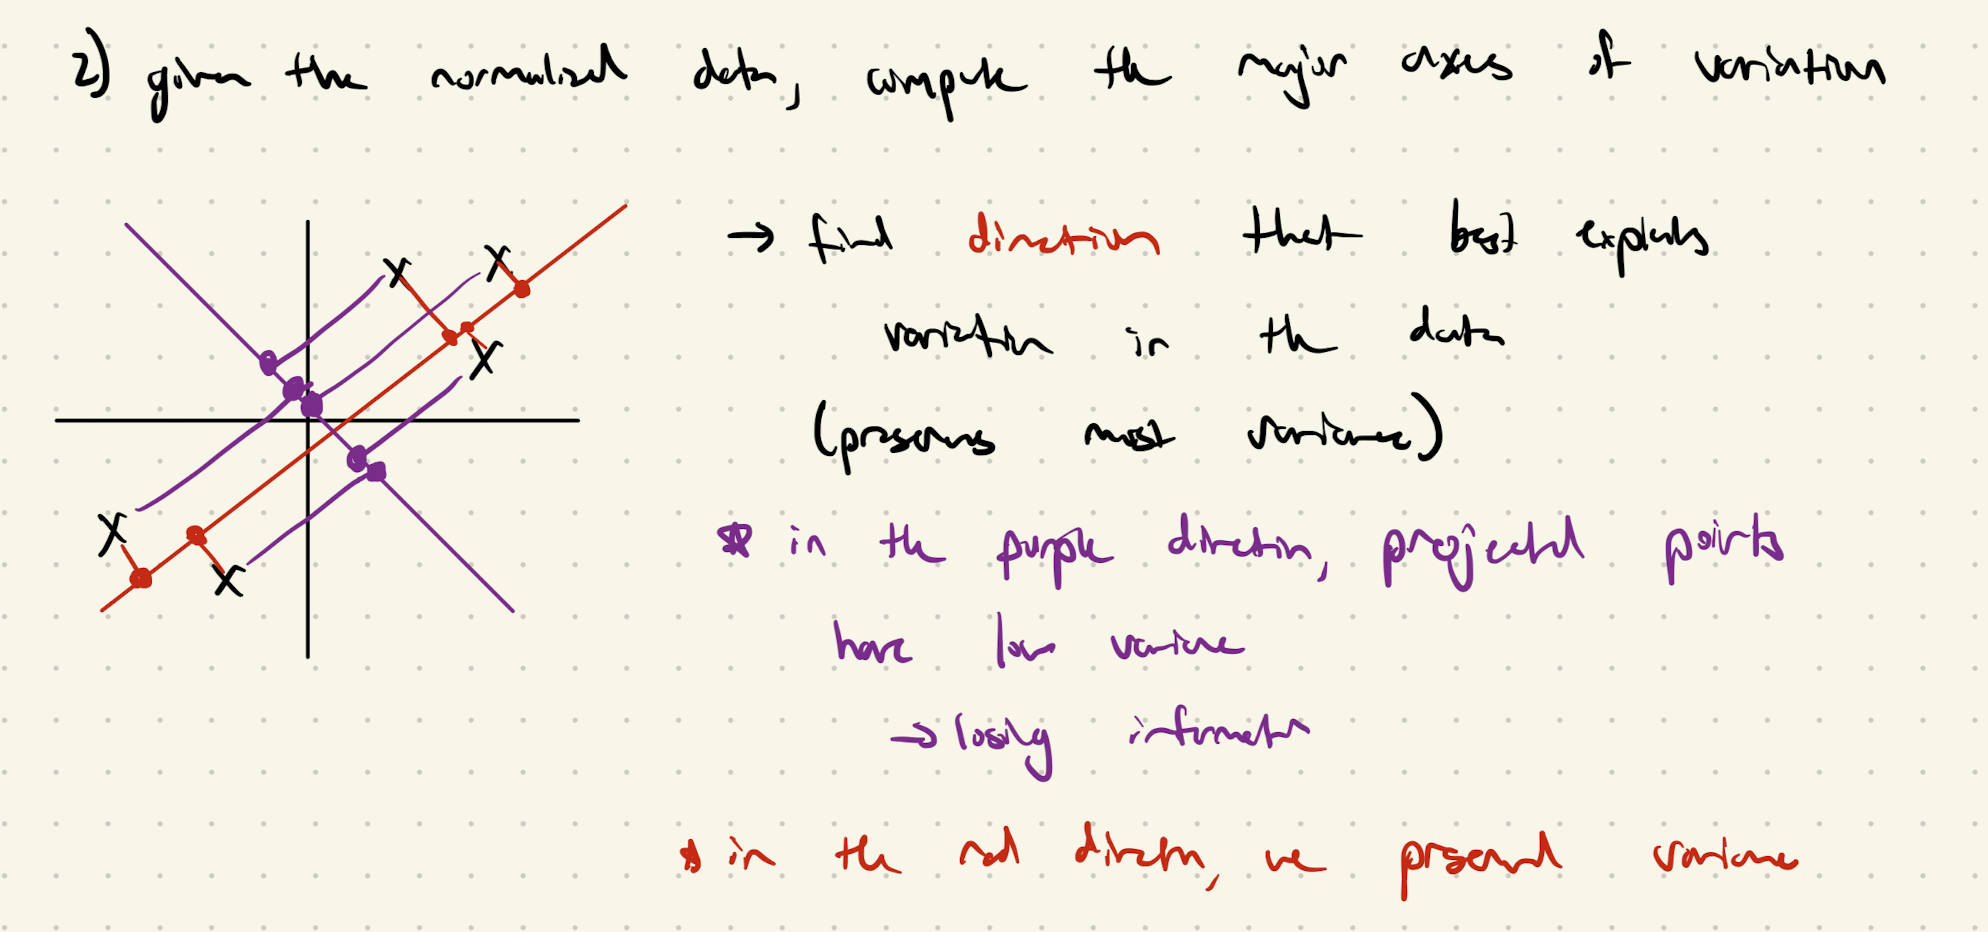 2) given the normalized data, compute the major axes of variation
→ find direction that best explains
variation in the data
(preserves most variance)
* in the purple direction, projected points
have low variance
→ losing information
* in the red direction, we preserved variance